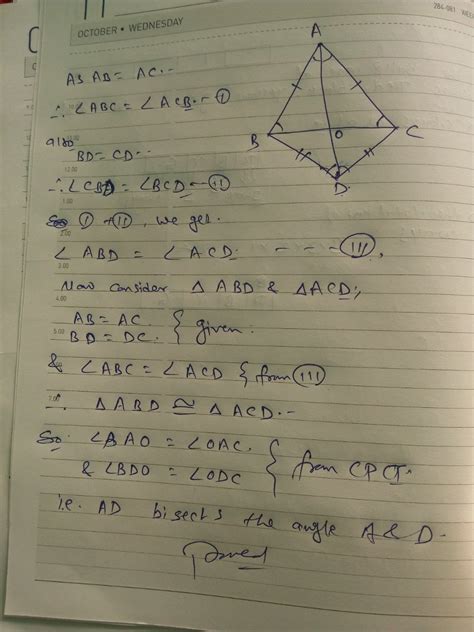 OCTOBER • WEDNESDAY
284-081
As AB = AC.-
∴ ∠ABC = ∠ACB.- (I)
also
BD = CD.-
∴ ∠CBD = ∠BCD - (II)
So (I) + (II), we get.
∠ABD = ∠ACD. - - - (III),
Now consider △ABD & △ACD,
AB = AC.
BD = DC. } given.
& ∠ABC = ∠ACD { from (III)
∴ △ABD ≅ △ACD.-
So. ∠BAO = ∠OAC.
& ∠BDO = ∠ODC } from CPCT.
i.e. AD bisects the angle A & D.
Proved
A
B
O
C
D.
12.00
1.00
2.00
3.00
4.00
5.00
7.00